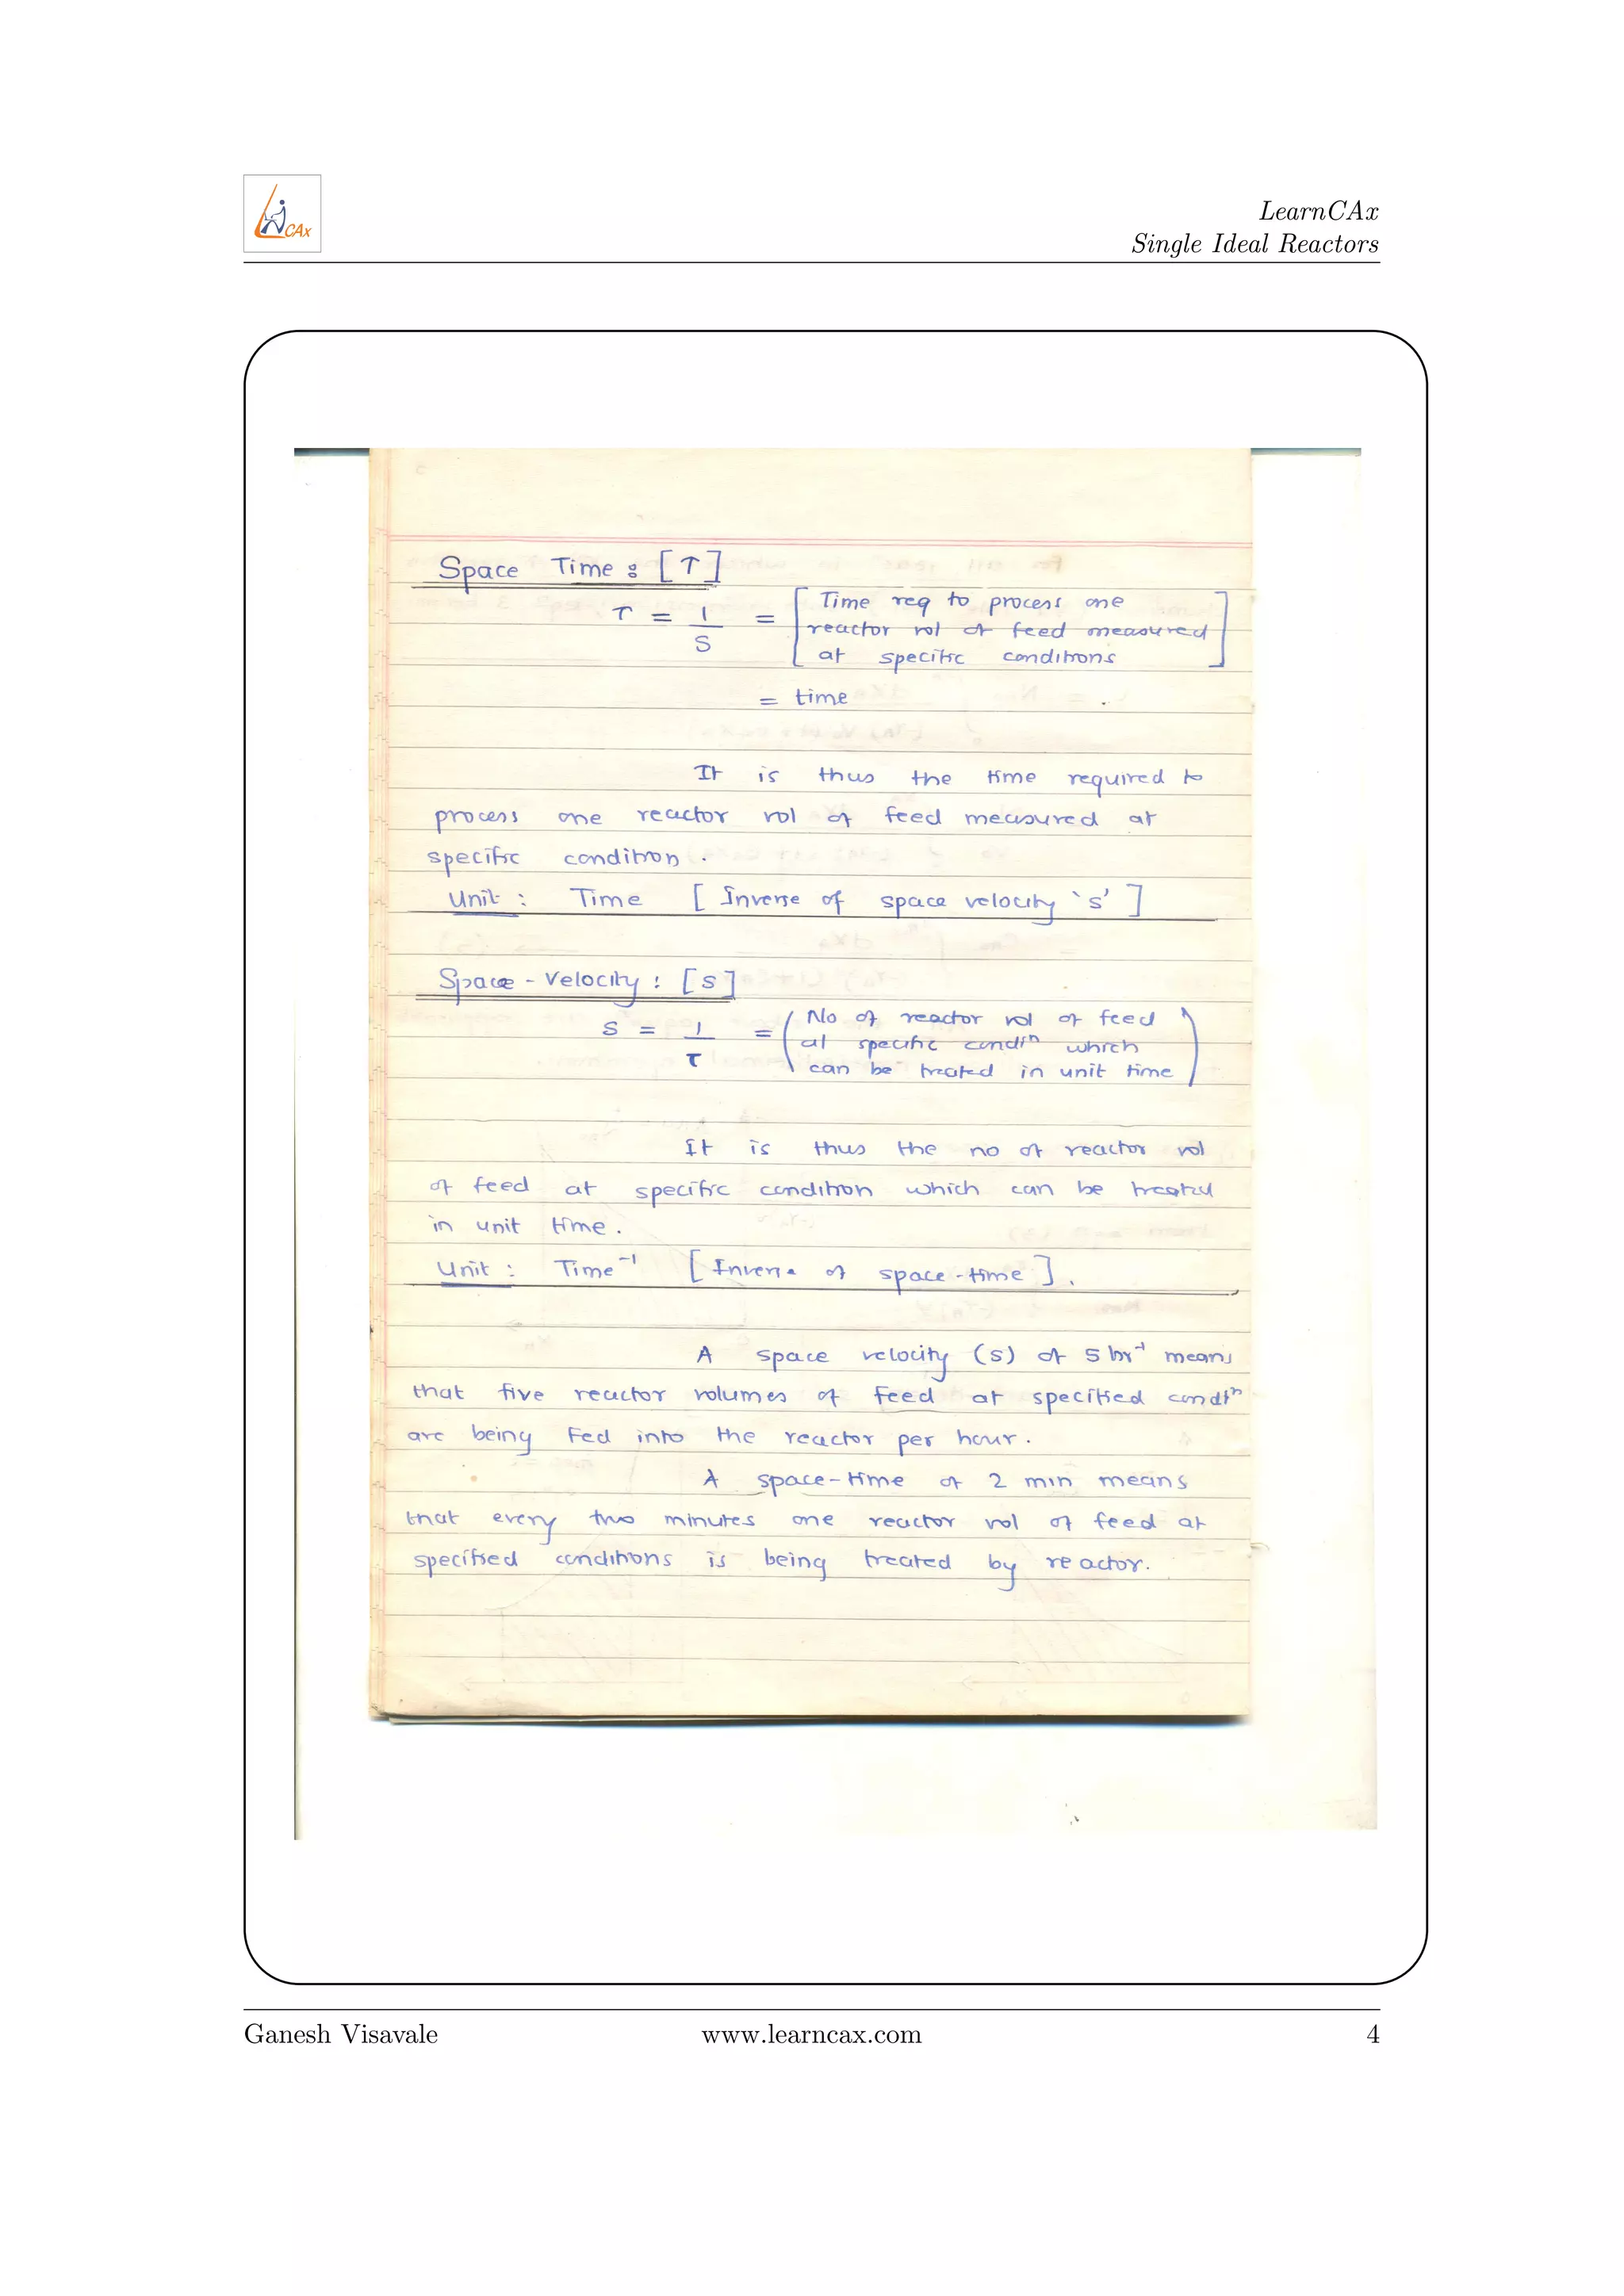 CAx
LearnCAx
Single Ideal Reactors
Space Time : [τ]
τ = 1/S = [Time req to process one
reactor vol of feed measured
at specific conditions]
= time
It is thus the time required to
process one reactor vol of feed measured at
specific condition .
Unit : Time [ Inverse of space velocity `s' ]
Space - Velocity : [s]
s = 1/τ = (No of reactor vol of feed
at specific condiⁿ which
can be treated in unit time)
It is thus the no of reactor vol
of feed at specific condition which can be treated
in unit time .
Unit : Time⁻¹ [Inverse of space-time].
A space velocity (s) of 5 hr⁻¹ means
that five reactor volumes of feed at specified condiⁿ
are being Fed into the reactor per hour .
A space-time of 2 min means
that every two minutes one reactor vol of feed at
specified conditions is being treated by reactor.
Ganesh Visavale www.learncax.com 4